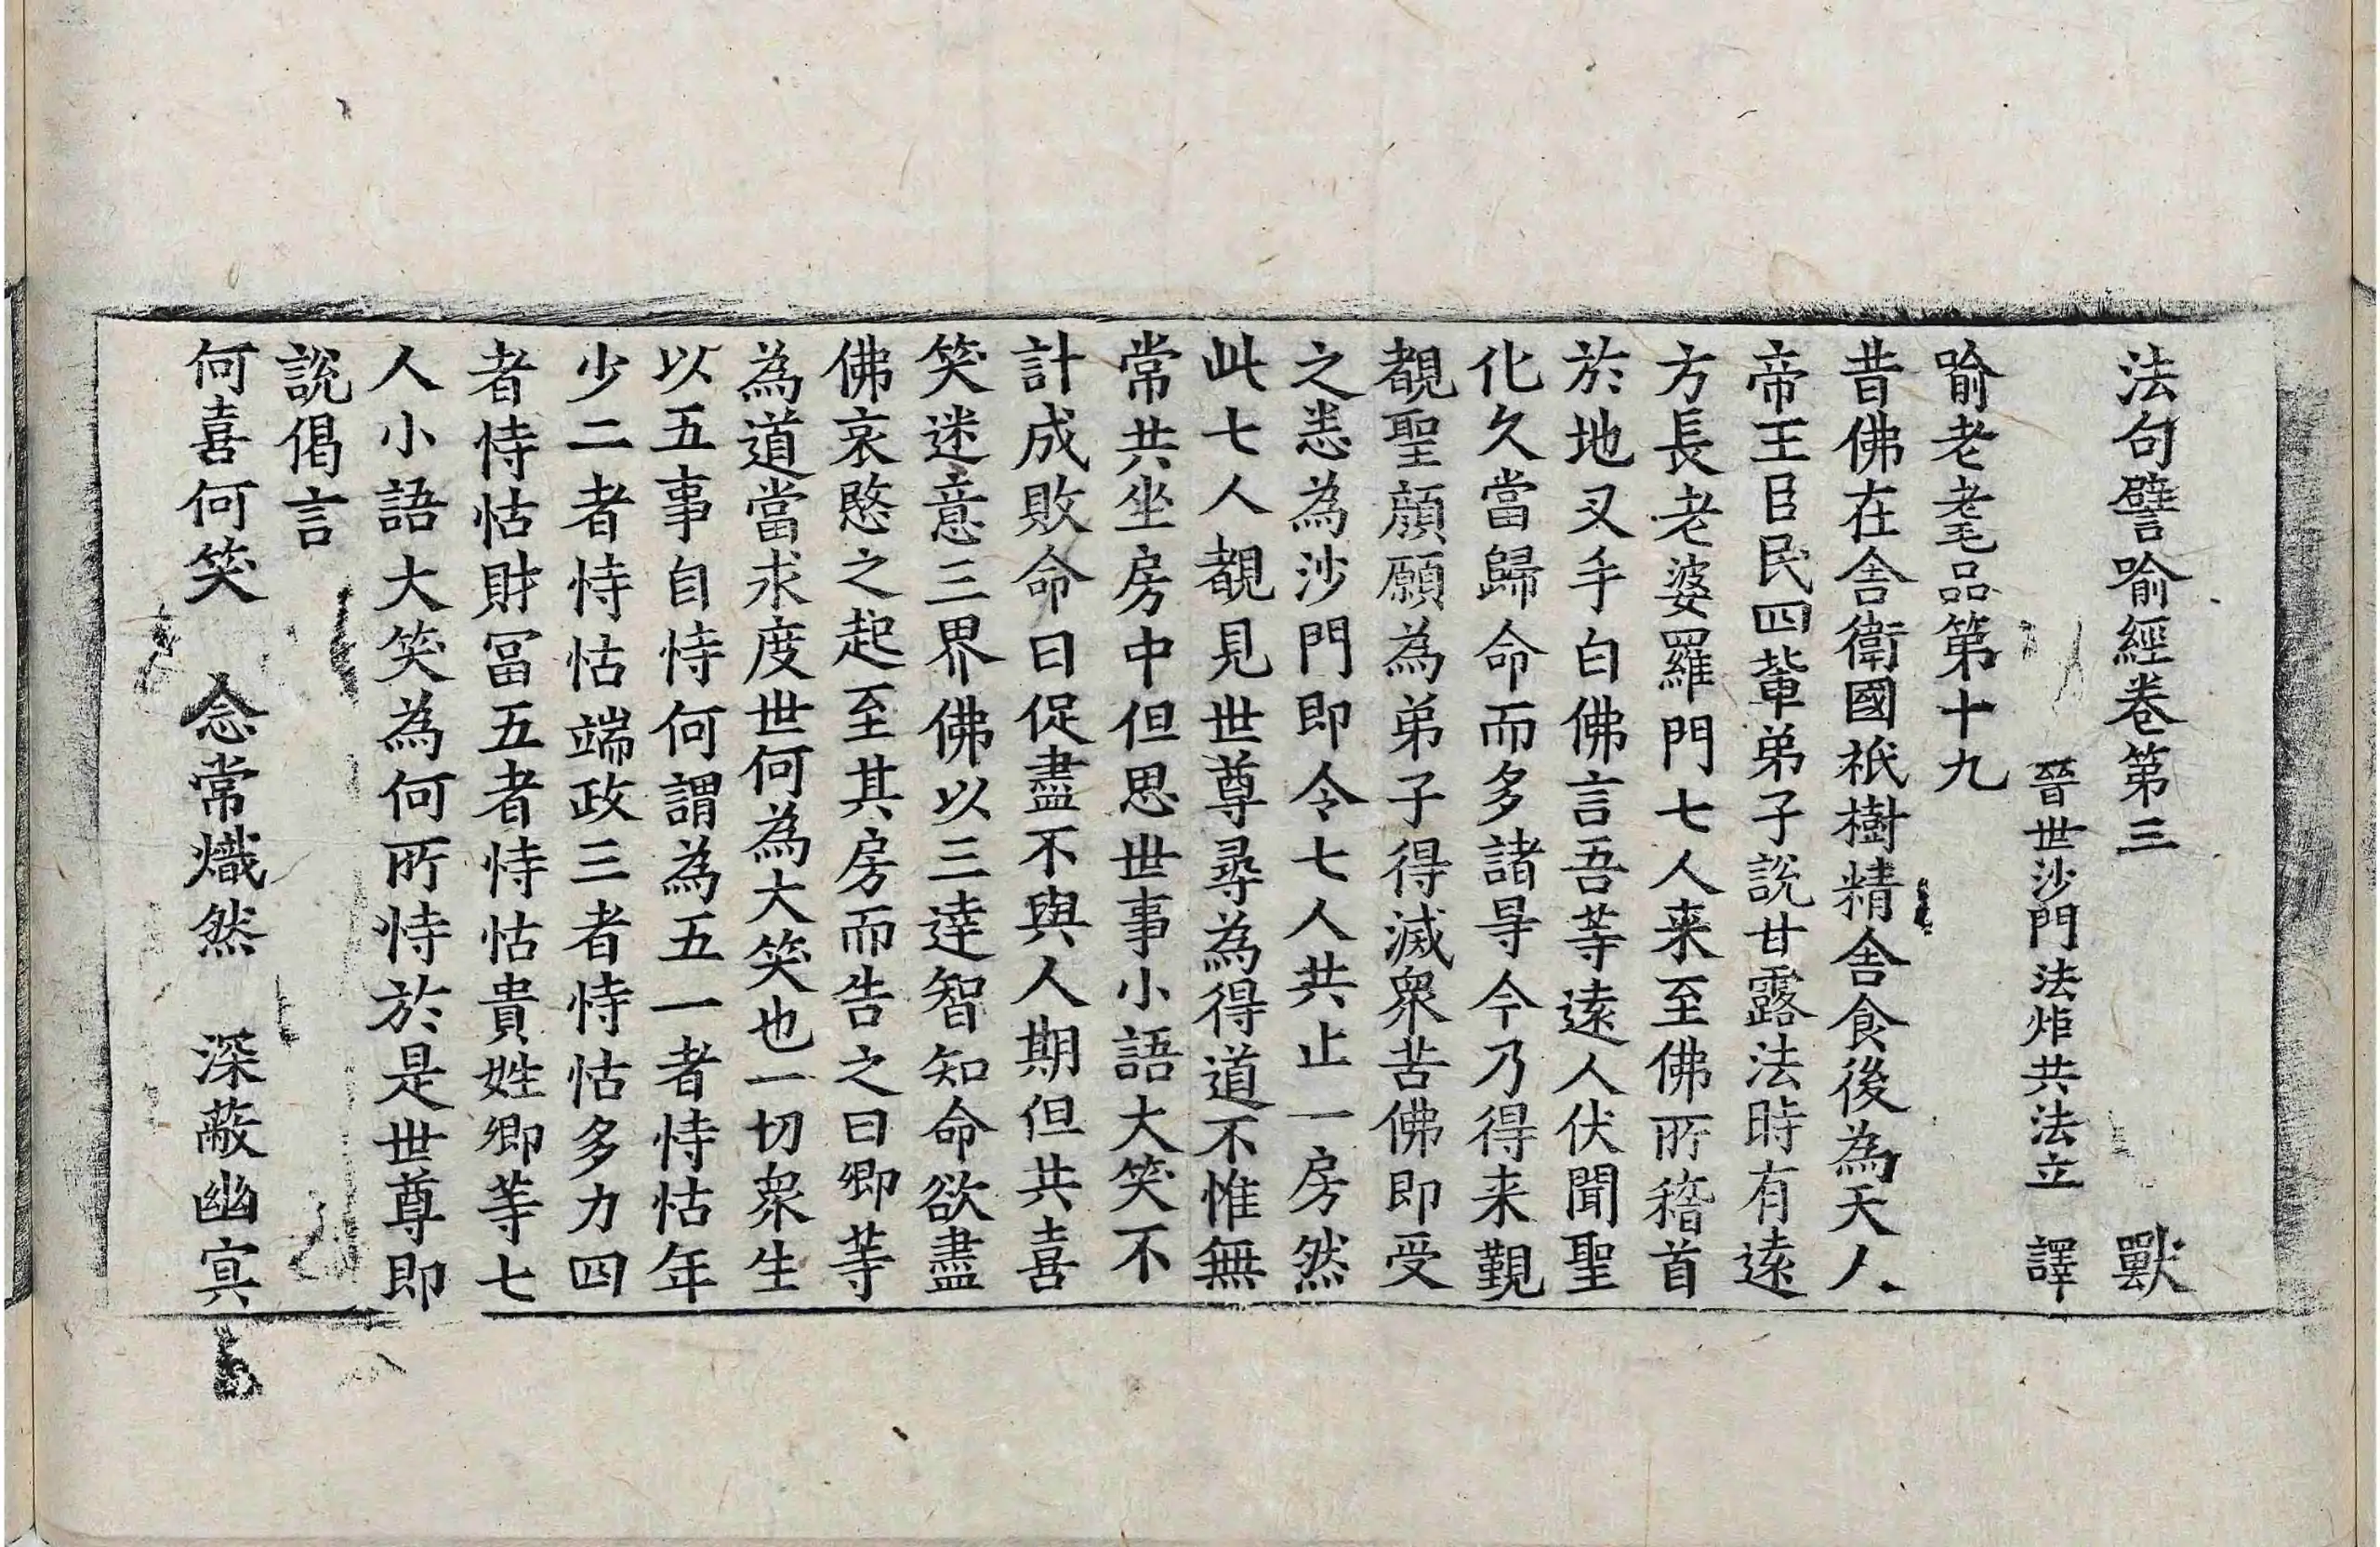 法句譬喻經卷第三 獸
晉世沙門法炬共法立 譯
喻老耄品第十九
昔佛在舍衛國祇樹精舍食後為天人
帝王臣民四輩弟子說甘露法時有遠
方長老婆羅門七人来至佛所稽首
於地叉手白佛言吾等遠人伏聞聖
化久當歸命而多諸㝵今乃得来覲
覩聖顔願為弟子得滅衆苦佛即受
之悉為沙門即令七人共止一房然
此七人覩見世尊尋為得道不惟無
常共坐房中但思世事小語大笑不
計成敗命日促盡不與人期但共喜
笑迷意三界佛以三達智知命欲盡
佛哀愍之起至其房而告之曰卿等
為道當求度世何為大笑也一切衆生
以五事自恃何謂為五一者恃怙年
少二者恃怙端政三者恃怙多力四
者恃怙財冨五者恃怙貴姓卿等七
人小語大笑為何所恃於是世尊即
說偈言
何喜何笑 念常熾然 深蔽幽冥